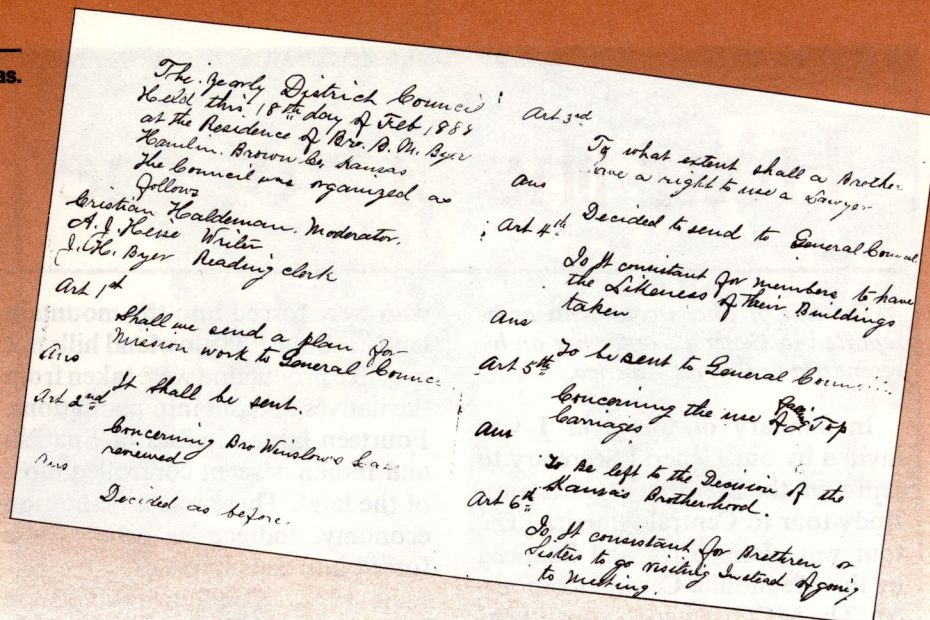 as.
The Yearly District Council
Held this 18th day of Feb 1888
at the Residence of Bro. B. M. Byer
Hamlin Brown Co Kansas
The Council was organized as
follows
Cristian Haldeman. Moderator.
A. J. Heise Writer
J. H. Byer Reading clerk
Art 1st
Shall we send a plan for
Mission work to General Counc
Ans
It Shall be sent
Art 2nd
Concerning Bro Winslow's
renewed
Ans
Decided as before.
Art 3rd
To what extent shall a Brother
have a right to use a Lawyer
Ans
Decided to send to General Council
Art 4th
Is It consistant for members to have
the Likeness of their Buildings
taken
Ans
To be sent to General Council
Art 5th
Concerning the use of Top
Carriages
Ans
To Be left to the Decision of the
Kansas Brotherhood.
Art 6th
Is It consistant for Brethren or
Sisters to go visiting Instead of going
to Meeting.